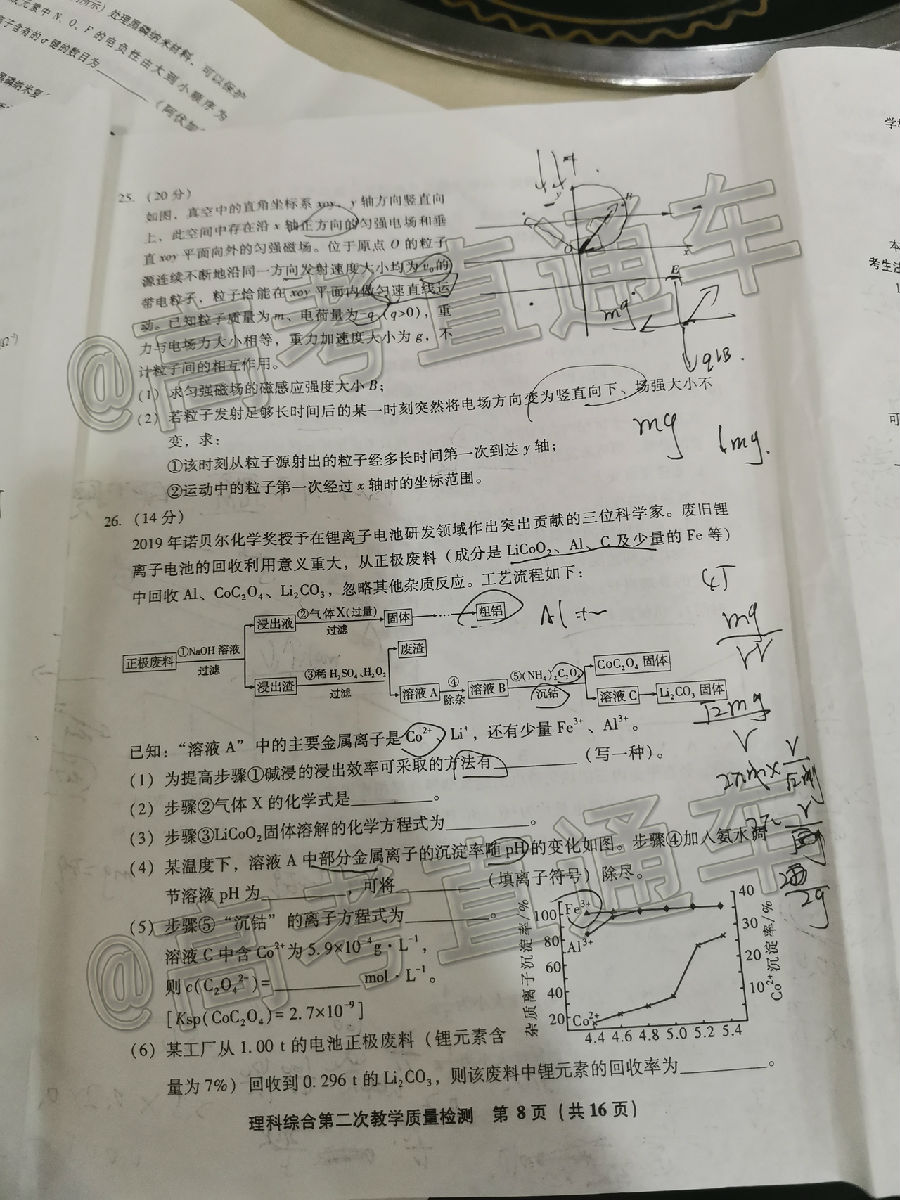 所示）处理黑磷纳米材料，可以保护
元素中 N、O、F 的电负性由大到小顺序为
子含有的σ键的数目为________（阿伏加
25. （20 分）
如图，真空中的直角坐标系 xoy，y 轴方向竖直向
上，此空间中存在沿 x 轴正方向的匀强电场和垂
直 xoy 平面向外的匀强磁场。位于原点 O 的粒子
源连续不断地沿同一方向发射速度大小均为 v₀ 的
带电粒子，粒子恰能在 xoy 平面内做匀速直线运
动。已知粒子质量为 m、电荷量为 q（q>0），重
力与电场力大小相等，重力加速度大小为 g，不
计粒子间的相互作用。
mg
qvB.
（1）求匀强磁场的磁感应强度大小 B；
（2）若粒子发射足够长时间后的某一时刻突然将电场方向变为竖直向下、场强大小不
变，求：
mg
mg.
①该时刻从粒子源射出的粒子经多长时间第一次到达 y 轴；
②运动中的粒子第一次经过 x 轴时的坐标范围。
26. （14 分）
2019 年诺贝尔化学奖授予在锂离子电池研发领域作出突出贡献的三位科学家。废旧锂
离子电池的回收利用意义重大，从正极废料（成分是 LiCoO₂、Al、C 及少量的 Fe 等）
中回收 Al、CoC₂O₄、Li₂CO₃，忽略其他杂质反应。工艺流程如下：
正极废料 ①NaOH 溶液 过滤
浸出液 ②气体X(过量) 过滤 固体 粗铝
浸出渣 ③稀 H₂SO₄、H₂O₂ 过滤 废渣
溶液 A ④ 除杂 溶液 B ⑤(NH₄)₂C₂O₄ 沉钴 CoC₂O₄ 固体
溶液 C Li₂CO₃ 固体
已知：“溶液 A”中的主要金属离子是 Co²⁺、Li⁺，还有少量 Fe³⁺、Al³⁺。
（1）为提高步骤①碱浸的浸出效率可采取的方法有________（写一种）。
（2）步骤②气体 X 的化学式是________。
（3）步骤③LiCoO₂固体溶解的化学方程式为________。
（4）某温度下，溶液 A 中部分金属离子的沉淀率随 pH 的变化如图。步骤④加入氨水调
节溶液 pH 为________，可将________（填离子符号）除尽。
（5）步骤⑤“沉钴”的离子方程式为________。
溶液 C 中含 Co²⁺为 5.9×10⁻⁴g·L⁻¹，
则 c(C₂O₄²⁻)=________mol·L⁻¹。
[Ksp(CoC₂O₄)=2.7×10⁻⁹]
杂质离子沉淀率/%
100 80 60 40 20
Fe³⁺
Al³⁺
Co²⁺
40 30 20 10
Co²⁺沉淀率/%
4.4 4.6 4.8 5.0 5.2 5.4
（6）某工厂从 1.00 t 的电池正极废料（锂元素含
量为 7%）回收到 0.296 t 的 Li₂CO₃，则该废料中锂元素的回收率为________。
理科综合第二次教学质量检测 第 8 页（共 16 页）
@高考直通车
@高考直通车